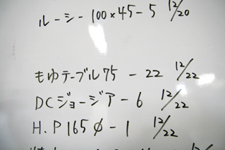 ルーシー100×45-5 12/20
もゆテーブル75-22 12/22
DCジョージア-6 12/22
H.P165φ-1 12/22